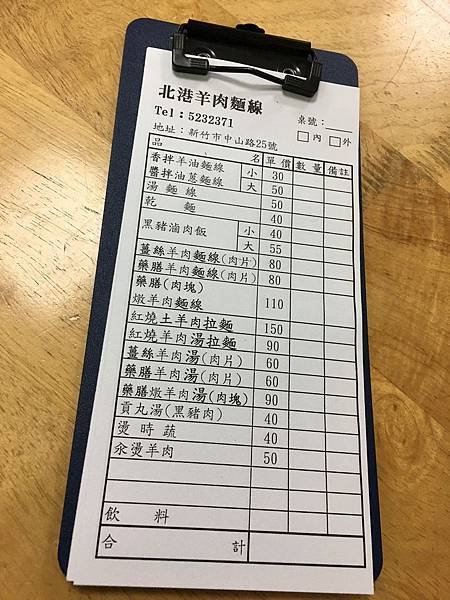 北港羊肉麵線
Tel：5232371
桌號：
地址：新竹市中山路25號 □內 □外
品名 單價 數量 備註
香拌羊油麵線 小 30
醬拌油蔥麵線 大 50
湯麵線 50
乾麵 40
黑豬滷肉飯 小 40
大 55
薑絲羊肉麵線(肉片) 80
藥膳羊肉麵線(肉片) 80
藥膳(肉塊)
燉羊肉麵線 110
紅燒土羊肉拉麵 150
紅燒羊肉湯拉麵 90
薑絲羊肉湯(肉片) 60
藥膳羊肉湯(肉片) 60
藥膳燉羊肉湯(肉塊) 90
貢丸湯(黑豬肉) 40
燙時蔬 40
汆燙羊肉 50
飲料
合計